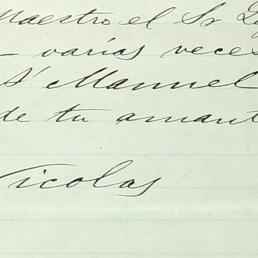 Maestro el Sr
– varias veces
Manuel
de tu amant
Nicolas